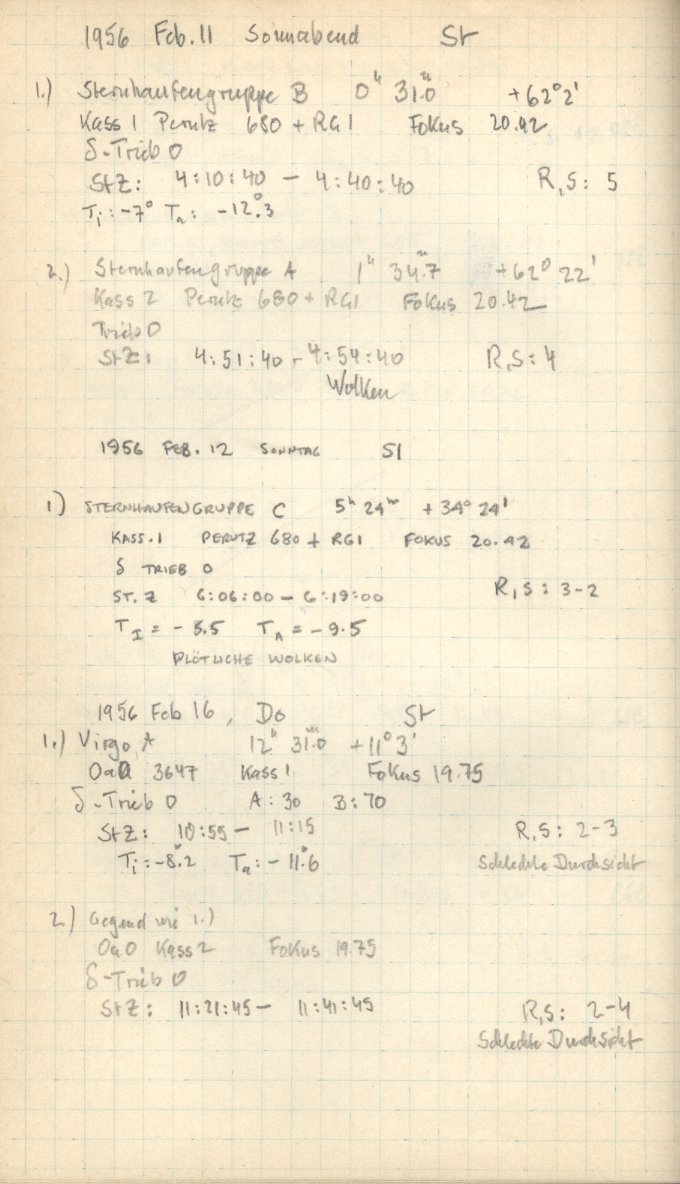 1956 Feb. 11 Sonnabend St
1.) Sternhaufengruppe B 0ʰ 31ᵐ.0 +62°2'
Kass 1 Perutz 680 + RG1 Fokus 20.42
δ-Trieb 0
StZ: 4:10:40 – 4:40:40 R,S: 5
Ti: -7° Ta: -12°.3
2.) Sternhaufengruppe A 1ʰ 34ᵐ.7 +62° 22'
Kass 2 Perutz 680 + RG1 Fokus 20.42
Trieb 0
StZ: 4:51:40 - 4:54:40 R,S: 4
Wolken
1956 FEB. 12 SONNTAG SI
1) STERNHAUFENGRUPPE C 5ʰ 24ᵐ +34° 24'
KASS. 1 PERUTZ 680 + RG1 FOKUS 20.42
δ TRIEB 0
ST. Z 6:06:00 – 6:19:00 R,S: 3-2
T_I = - 5.5 T_A = - 9.5
PLÖTLICHE WOLKEN
1956 Feb 16, Do St
1.) Virgo A 12ʰ 31ᵐ.0 +11° 3'
OaO 3647 Kass 1 Fokus 19.75
δ-Trieb 0 A: 30 B: 70
StZ: 10:55 – 11:15 R,S: 2-3
Ti: -8°.2 Ta: - 11°.6 Schlechte Durchsicht
2.) Gegend wie 1.)
OaO Kass 2 Fokus 19.75
δ-Trieb 0
StZ: 11:21:45 – 11:41:45 R,S: 2-4
Schlechte Durchsicht